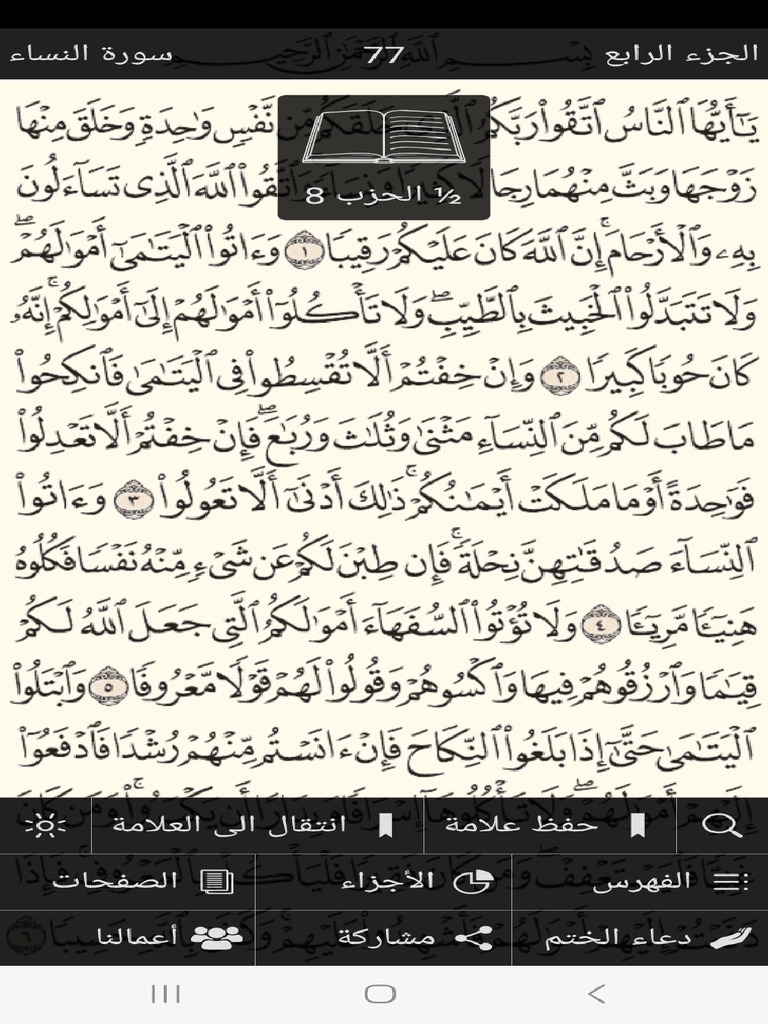 الجزء الرابع 77 سورة النساء
بِسْمِ ٱللَّهِ ٱلرَّحْمَٰنِ ٱلرَّحِيمِ
يَٰٓأَيُّهَا ٱلنَّاسُ ٱتَّقُوا۟ رَبَّكُمُ ٱلَّذِى خَلَقَكُم مِّن نَّفْسٍ وَٰحِدَةٍ وَخَلَقَ مِنْهَا
زَوْجَهَا وَبَثَّ مِنْهُمَا رِجَالًا كَثِيرًا وَنِسَآءً وَٱتَّقُوا۟ ٱللَّهَ ٱلَّذِى تَسَآءَلُونَ
½ الحزب 8
بِهِۦ وَٱلْأَرْحَامَ ۚ إِنَّ ٱللَّهَ كَانَ عَلَيْكُمْ رَقِيبًا ١ وَءَاتُوا۟ ٱلْيَتَٰمَىٰٓ أَمْوَٰلَهُمْ ۖ
وَلَا تَتَبَدَّلُوا۟ ٱلْخَبِيثَ بِٱلطَّيِّبِ ۖ وَلَا تَأْكُلُوٓا۟ أَمْوَٰلَهُمْ إِلَىٰٓ أَمْوَٰلِكُمْ ۚ إِنَّهُۥ
كَانَ حُوبًا كَبِيرًا ٢ وَإِنْ خِفْتُمْ أَلَّا تُقْسِطُوا۟ فِى ٱلْيَتَٰمَىٰ فَٱنكِحُوا۟
مَا طَابَ لَكُم مِّنَ ٱلنِّسَآءِ مَثْنَىٰ وَثُلَٰثَ وَرُبَٰعَ ۖ فَإِنْ خِفْتُمْ أَلَّا تَعْدِلُوا۟
فَوَٰحِدَةً أَوْ مَا مَلَكَتْ أَيْمَٰنُكُمْ ۚ ذَٰلِكَ أَدْنَىٰٓ أَلَّا تَعُولُوا۟ ٣ وَءَاتُوا۟
ٱلنِّسَآءَ صَدُقَٰتِهِنَّ نِحْلَةً ۚ فَإِن طِبْنَ لَكُمْ عَن شَىْءٍ مِّنْهُ نَفْسًا فَكُلُوهُ
هَنِيٓـًٔا مَّرِيٓـًٔا ٤ وَلَا تُؤْتُوا۟ ٱلسُّفَهَآءَ أَمْوَٰلَكُمُ ٱلَّتِى جَعَلَ ٱللَّهُ لَكُمْ
قِيَٰمًا وَٱرْزُقُوهُمْ فِيهَا وَٱكْسُوهُمْ وَقُولُوا۟ لَهُمْ قَوْلًا مَّعْرُوفًا ٥ وَٱبْتَلُوا۟
ٱلْيَتَٰمَىٰ حَتَّىٰٓ إِذَا بَلَغُوا۟ ٱلنِّكَاحَ فَإِنْ ءَانَسْتُم مِّنْهُمْ رُشْدًا فَٱدْفَعُوٓا۟
حفظ علامة انتقال الى العلامة
الفهرس الأجزاء الصفحات
دعاء الختم مشاركة أعمالنا